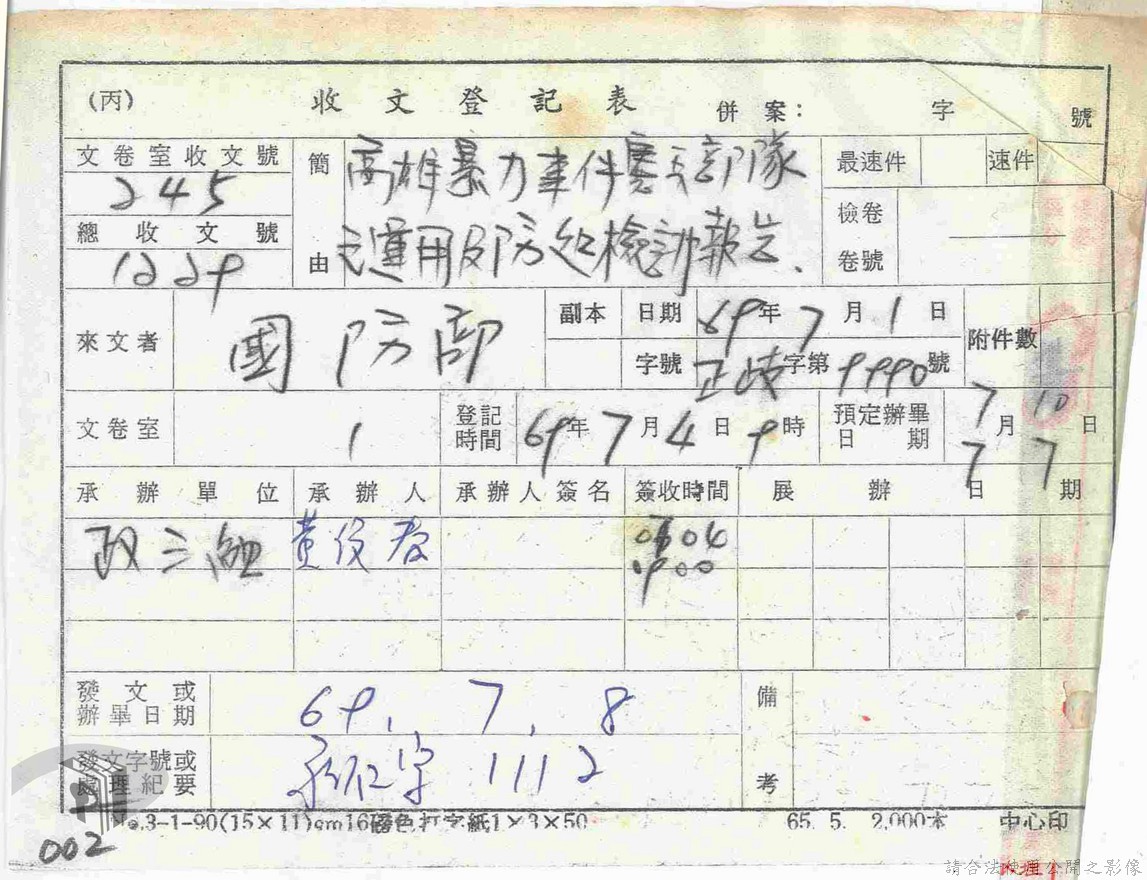 (丙) 收文登記表 併案: 字 號
文卷室收文號 簡由 高雄暴力事件憲兵部隊 最速件 速件
245
總收文號 之運用及防処檢討報告、 檢卷卷號
1229
來文者 國防部 副本 日期 69年7月1日 附件數
字號 正歧字第9990號
文卷室 1 登記時間 69年7月4日9時 預定辦畢日期 7月10日
7 7
承辦單位 承辦人 承辦人簽名 簽收時間 展辦日期
政三組 黃俊 0704
0900
發文或辦畢日期 69. 7. 8 備考
發文字號或處理紀要 字 1112
No.3-1-90(15×11)cm16磅色打字紙1×3×50 65. 5. 2,000本 中心印
002
請合法使用公開之影像